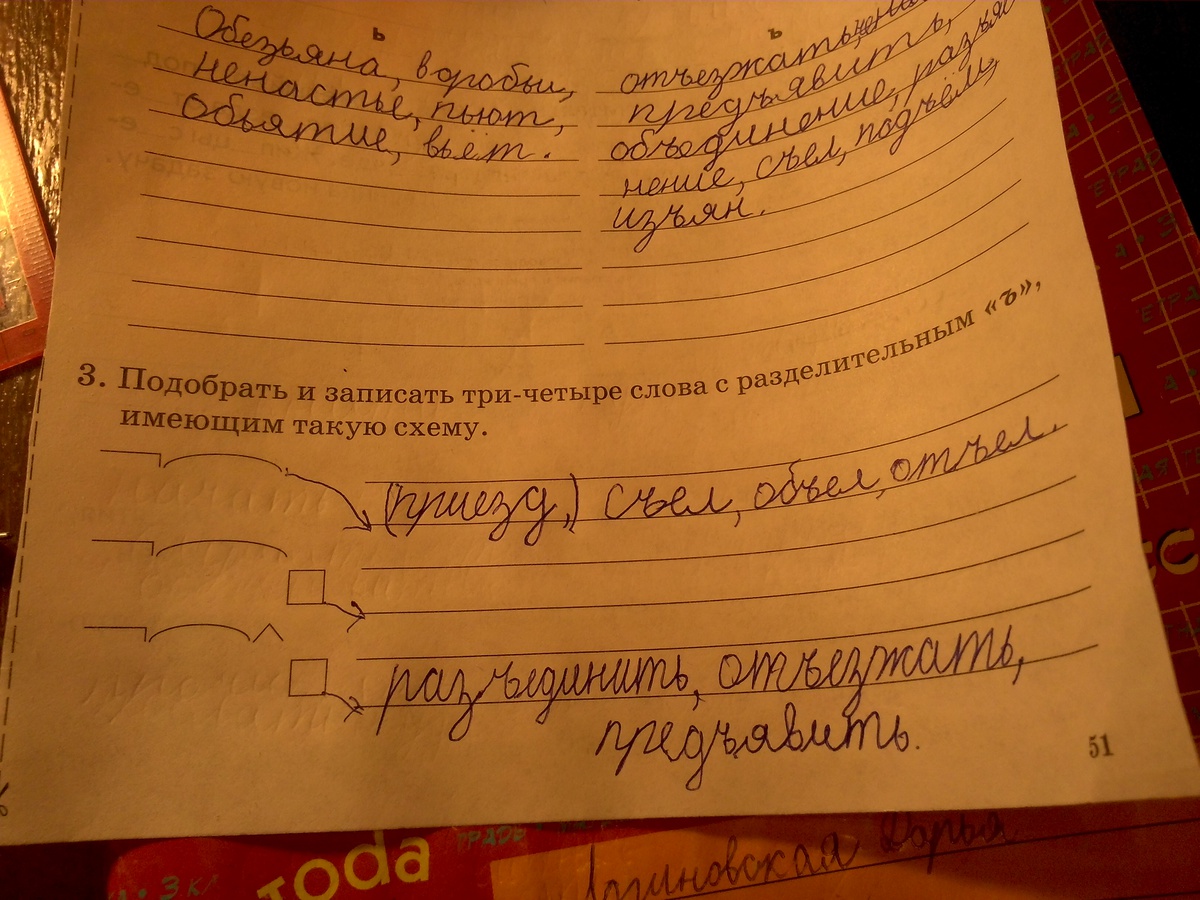 ь ъ
Обезьяна, воробьи,
ненастье, пьют,
обьятие, вьёт.
отъезжать,
предъявить,
объединение, разъеди
нение, съел, подъём,
изъян.
3. Подобрать и записать три-четыре слова с разделительным «ъ»,
имеющим такую схему.
(приезд,) съел, объел, отъел.
разъединить, отъезжать,
предъявить.
51
toda
Дарья